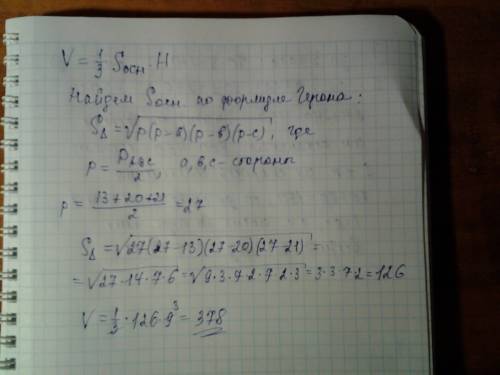 V = 1/3 Sосн · H
Найдем Sосн по формуле Герона:
S△ = √p(p-в)(p-в)(p-с), где
p = PАВС/2, а,в,с - стороны
p = 13+20+21/2 = 27
S△ = √27(27-13)(27-20)(27-21) =
= √27·14·7·6 = √9·3·7·2·7·2·3 = 3·3·7·2 = 126
V = 1/3 · 126 · 9³ = 378